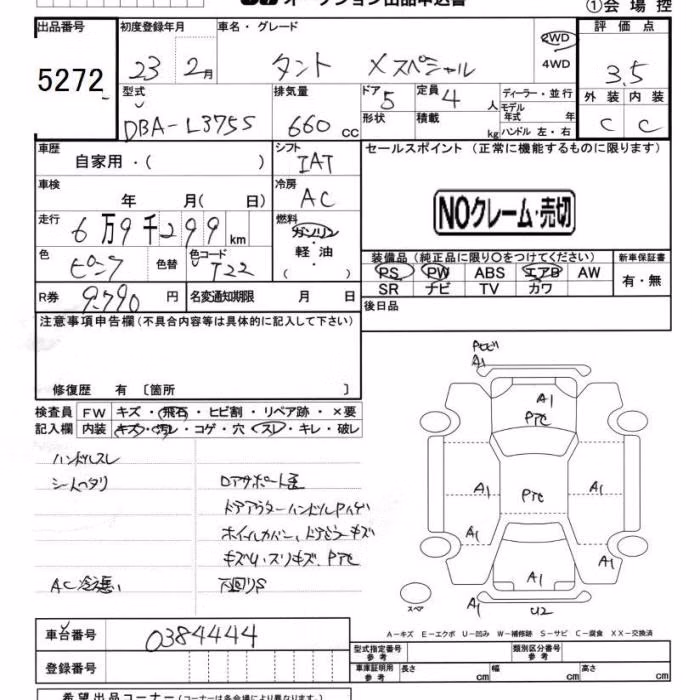 オークション出品申込書
①会 場 控
出品番号
5272
初度登録年月
23 2月
車名・グレード
タント Xスペシャル
2WD
4WD
評 価 点
3.5
型式
DBA-L375S
排気量
660 cc
ドア
5
定員
4 人
形状
積載
kg
ディーラー・並 行
モデル
年式 年
ハンドル 左・右
外 装
内 装
C
C
車歴
自家用・( )
シフト
IAT
セールスポイント (正常に機能するものに限ります)
車検
年 月( 日)
冷房
AC
NOクレーム・売切
走行
6万9千299 km
燃料
ガソリン
軽 油
( )
色
ピンク
色替
色コード
T22
装備品 (純正品に限り○をつけてください)
新車保証書
PS PW ABS エアB AW
SR ナビ TV カワ
有・無
R券
9,790 円
名変通知期限 月 日
後日品
注意事項申告欄 (不具合内容等は具体的に記入して下さい)
修復歴 有 〔箇所 〕
検査員
記入欄
FW
キズ・飛石・ヒビ割・リペア跡・×要
内装
キズ・汚レ・コゲ・穴・スレ・キレ・破レ
ハンドルスレ
シートヘタリ
ロアサポート歪
ドアアウターハンドルPハゲ
ホイールカバー、ドアミラーキズ
キズU、スリキズ、Pアセ
AC冷悪い
下回りS
Pトビ
A1
A1
Pアセ
A1
Pアセ
A1
A1
A1
A1
U2
A1
スペア
A-キズ E-エクボ U-凹み W-補修跡 S-サビ C-腐食 XX-交換済
車台番号
0384444
登録番号
型式指定番号
参 考
類別区分番号
参 考
車庫証明用
参 考
長さ
cm
幅
cm
高さ
cm
希望出品コーナー (コーナーは各会場により異なります)